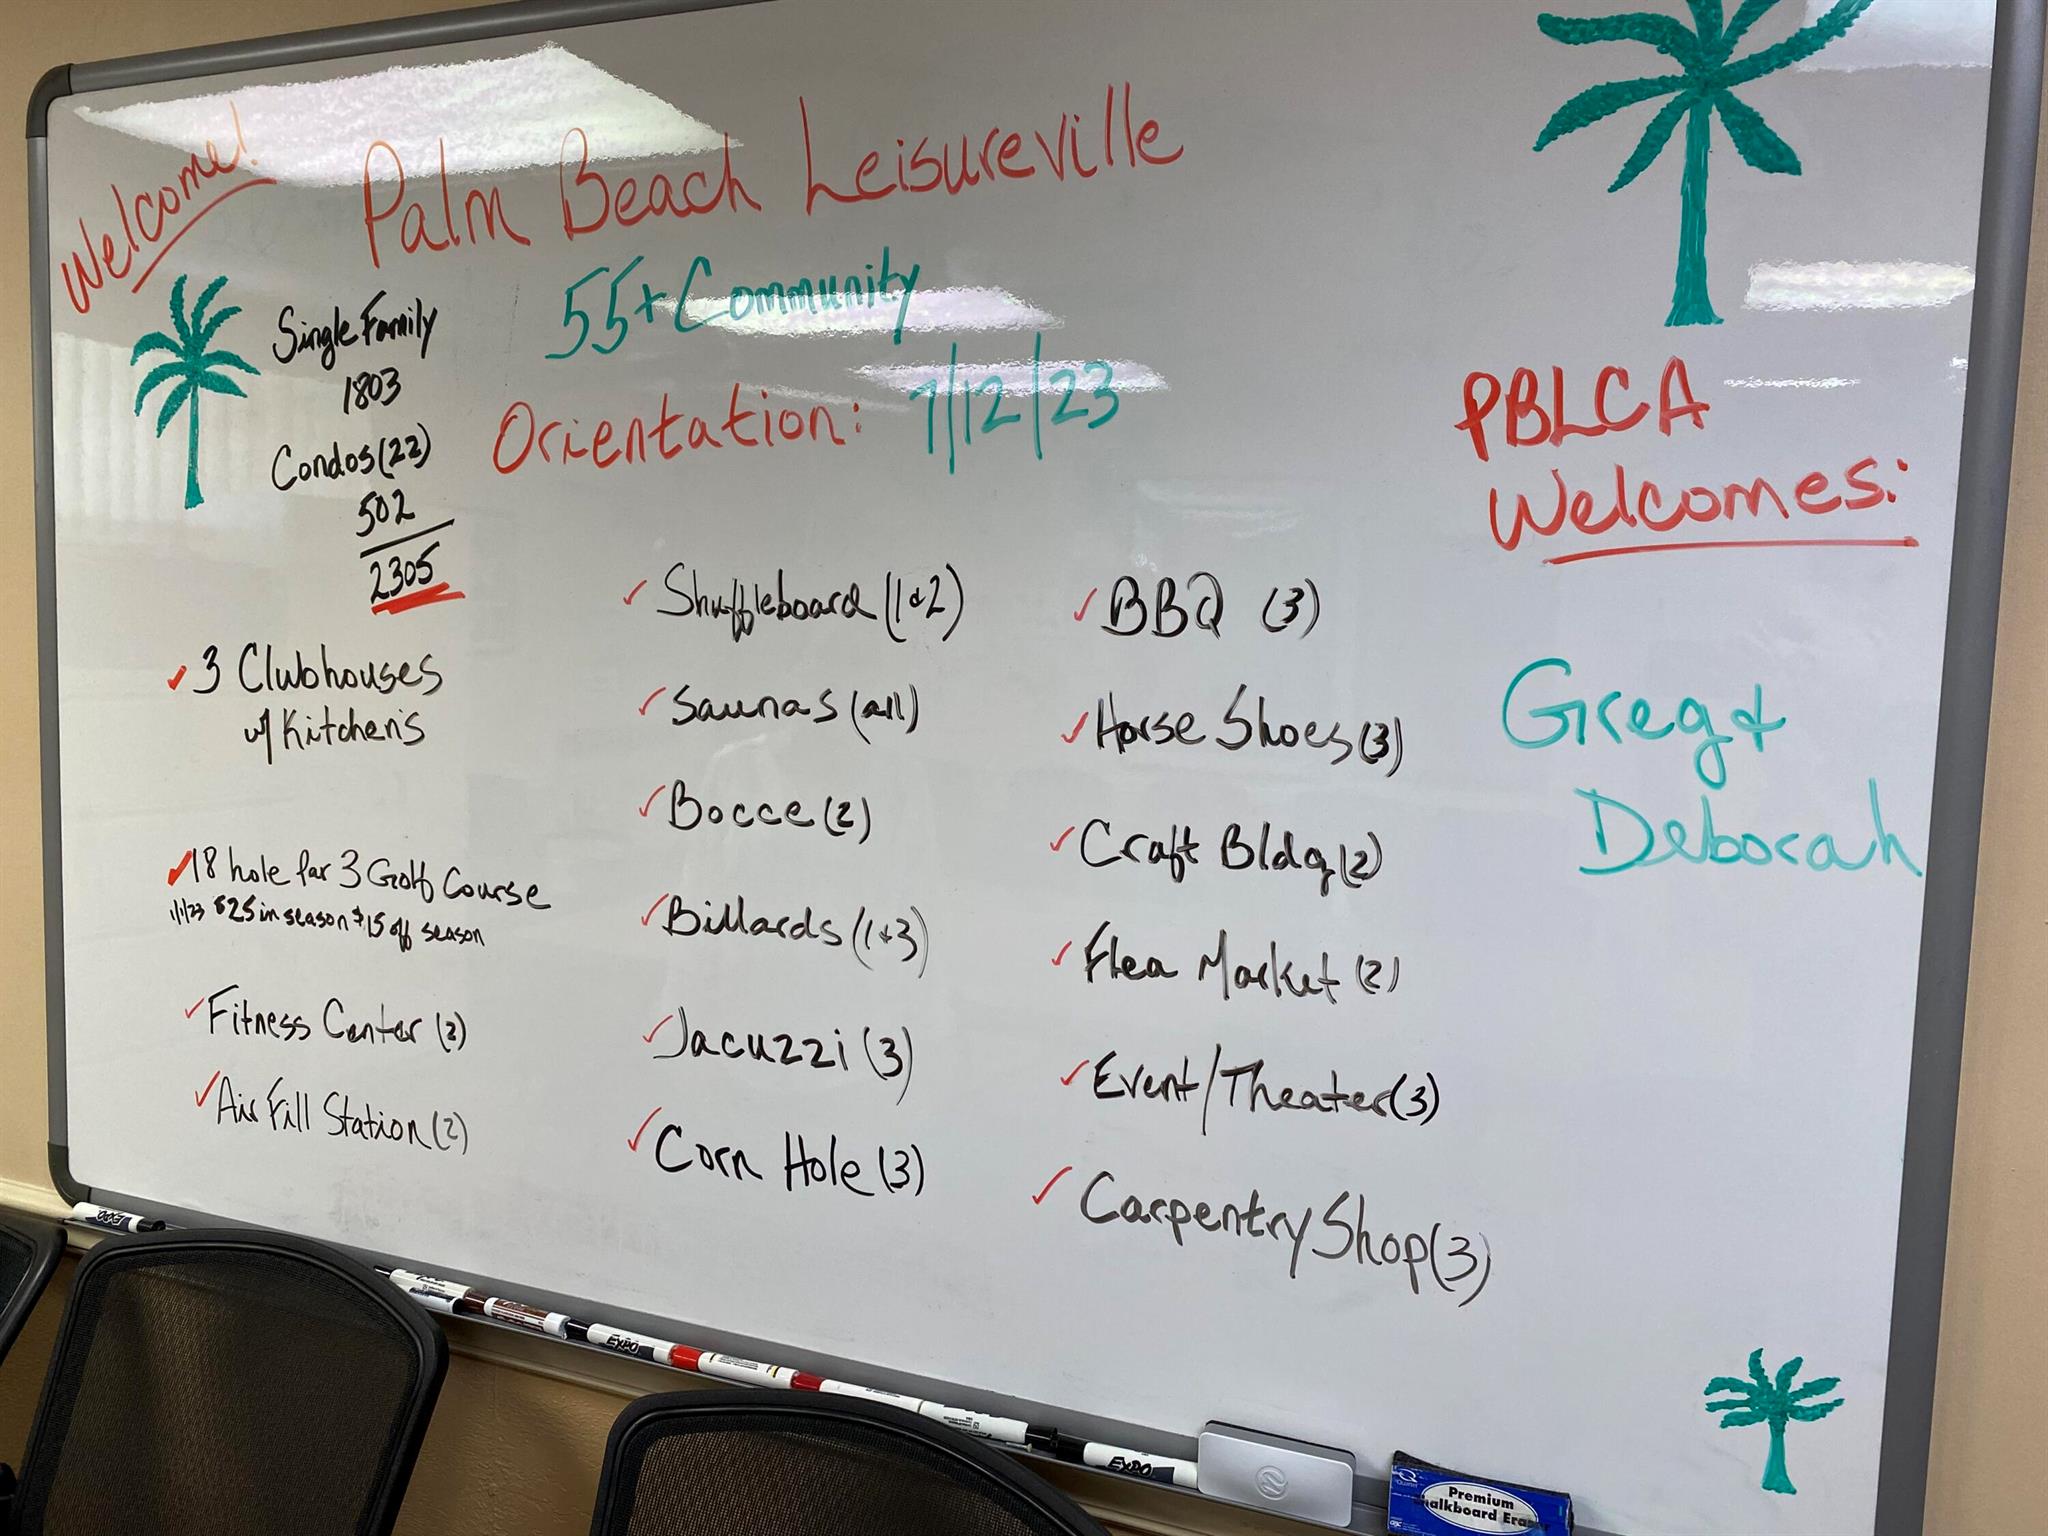 Welcome!
Palm Beach Leisureville
55+ Community
Orientation: 7/12/23
Single Family
1803
Condos (22)
502
2305
✓ 3 Clubhouses
w/ Kitchen's
✓ 18 hole par 3 Golf Course
1/1/23 $25 in season $15 off season
✓ Fitness Center (2)
✓ Air Fill Station (2)
✓ Shuffleboard (1&2)
✓ Saunas (all)
✓ Bocce (2)
✓ Billards (1&3)
✓ Jacuzzi (3)
✓ Corn Hole (3)
✓ BBQ (3)
✓ Horse Shoes (3)
✓ Craft Bldg (2)
✓ Flea Market (2)
✓ Event/Theater (3)
✓ Carpentry Shop (3)
PBLCA
Welcomes:
Greg &
Deborah
EXPO
EXPO
Premium
Chalkboard Eraser